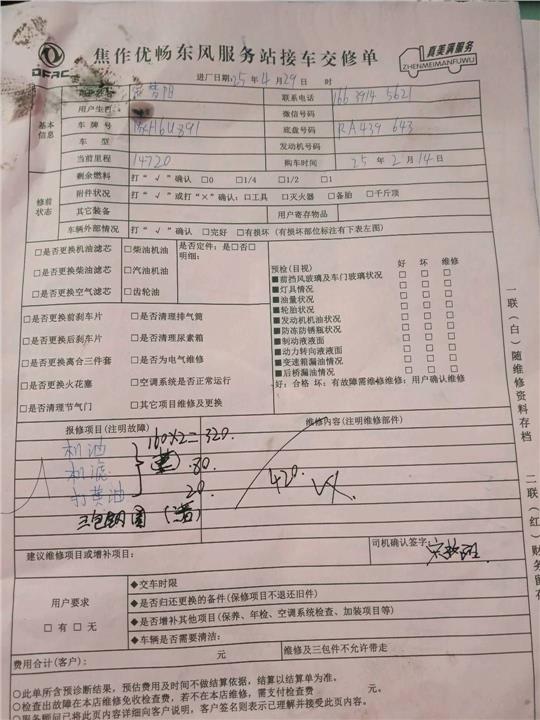 DFAC
焦作优畅东风服务站接车交修单
真美满服务
ZHENMEIMANFUWU
进厂日期:25年4月29日 时
联系电话 166 3914 5621
用户生日 微信号码
基本信息
车牌号 底盘号码 RA439 643
车型 发动机号码
当前里程 14720 购车时间 25年2月14日
修前状态
剩余燃料 打“√”确认 □0 □1/4 □1/2 □1
附件状况 打“√”或打“×”确认:□工具 □灭火器 □备胎 □千斤顶
其它装备 用户寄存物品
车辆外部情况 打“√”确认 □完好 □有损坏(有损坏部位标注有下表左图)
□是否更换机油滤芯 □柴油机油 是否定件:是□否□
明细:
□是否更换柴油滤芯 □汽油机油
□是否更换空气滤芯 □齿轮油
□是否更换前刹车片 □是否清理排气筒
□是否更换后刹车片 □是否清理尿素箱
□是否更换离合三件套 □是否为电气维修
□是否更换火花塞 □空调系统是否正常运行
□是否清理节气门 □其它项目维修及更换
预检(目视) 好 坏 维修
■前挡风玻璃及车门玻璃状况 □ □ □
■灯具情况 □ □ □
■油量状况 □ □ □
■轮胎状况 □ □ □
■发动机机油状况 □ □ □
■防冻防锈瓶状况 □ □ □
■制动液液面 □ □ □
■动力转向液液面 □ □ □
■变速箱漏油情况 □ □ □
■后桥漏油情况 □ □ □
好:合格 坏:有故障需维修维修:用户确认维修
一联(白)随维修资料存档
二联(红)财务留存
报修项目(注明故障) 维修内容(注明维修部件)
机油 160×2=320.
机滤 80.
打黄油 20.
420.
建议维修项目或增补项目: 司机确认签字:
用户要求
□有 □无
◆交车时限
◆是否归还更换的备件(保修项目不退还旧件)
◆是否增补其他项目(保养、年检、空调系统检查、加装项目等)
◆车辆是否需要清洁:
费用合计(客户): 元 维修及三包件不允许带走
○此单所含预诊断结果,预估费用及时间不做结算依据,结算以结算单为准。
○检查出故障在本店维修免收检查费,若不在本店维修,需支付检查费 元。
○服务顾问已将此页内容详细向客户说明,客户签名则表示已理解并接受此页内容。